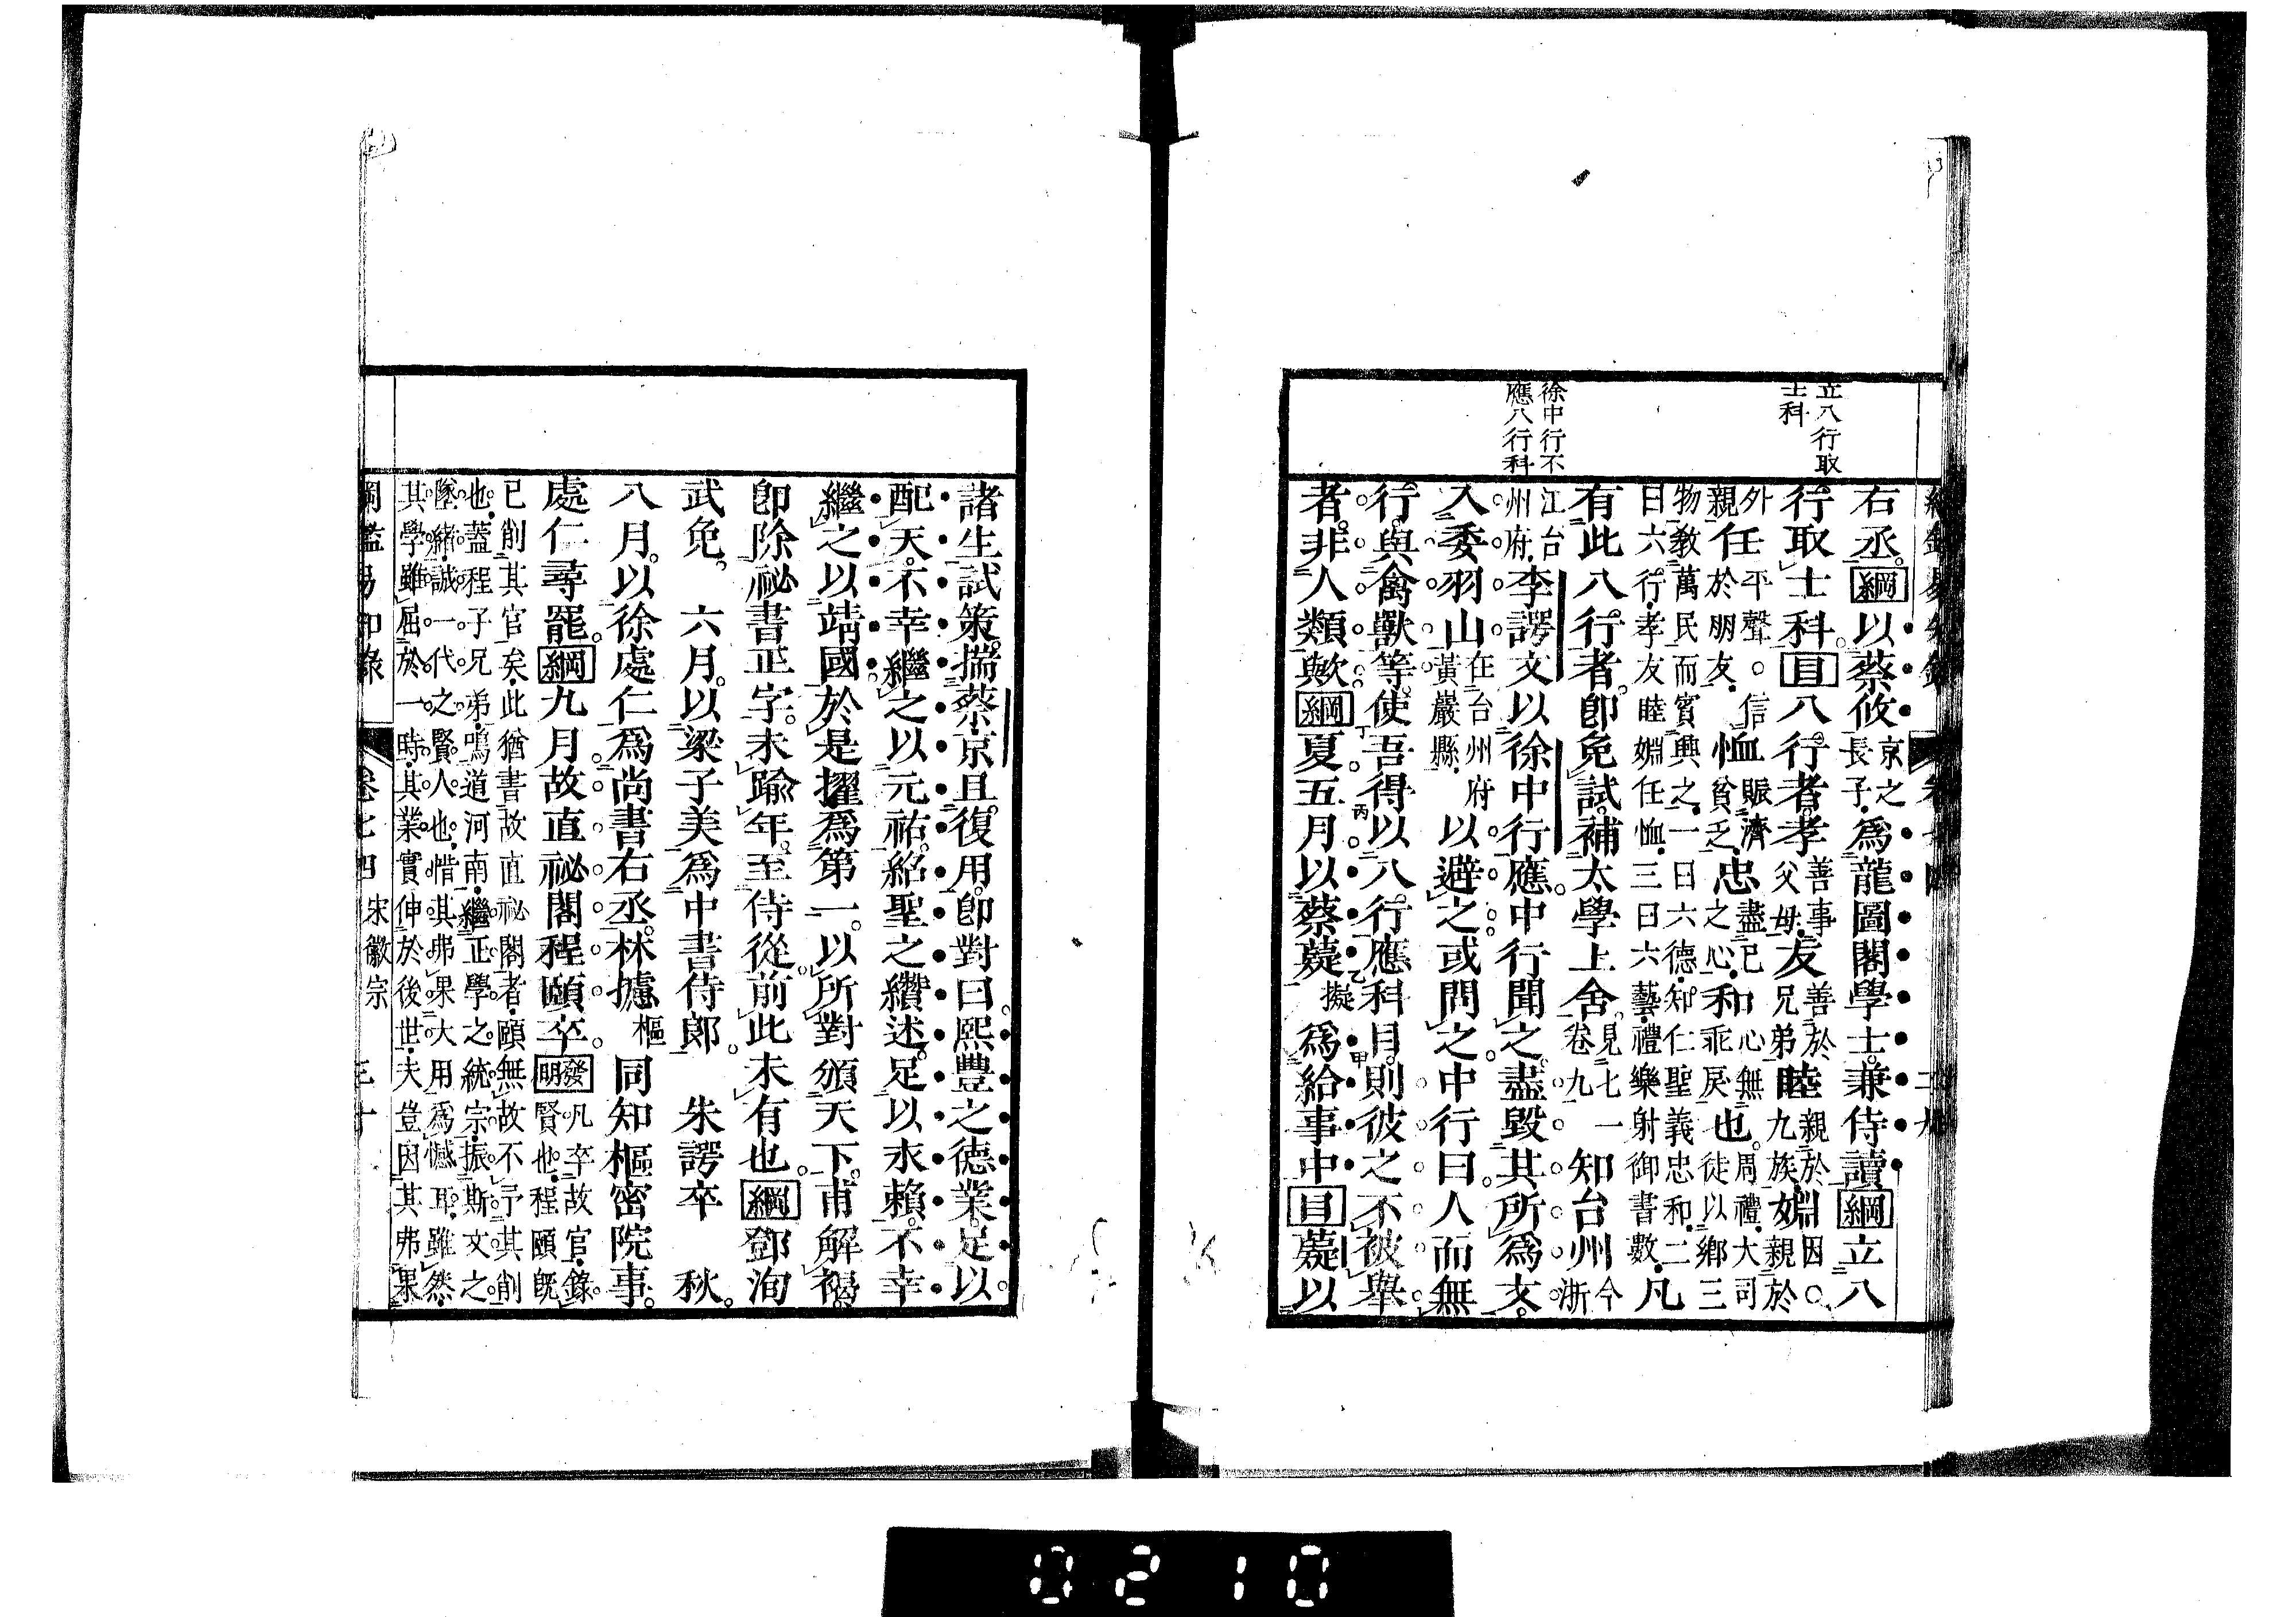 立八行取
士科
徐中行不
應八行科
右丞。綱以蔡攸京之長子爲龍圖閣學士。兼侍讀綱立八
行取士科。目八行者。孝善事父母友善於兄弟睦親於九族婣因○親於
外親任平聲○信於朋友恤賑濟貧乏忠盡己之心和心無乖戾也。周禮大司徒以鄉三
物教萬民而賓興之一曰六德知仁聖義忠和二曰六行孝友睦婣任恤三曰六藝禮樂射御書數凡
有此八行者。卽免試。補太學上舍見七一卷九知台州今浙
江台州府李諤文以徐中行應。中行聞之。盡毀其所爲文。
入委羽山在台州府黃巖縣以避之。或問之。中行曰人而無
行。與禽獸等。使吾得以八行應科目。則彼之不被舉
者。非人類歟。綱夏五月。以蔡薿擬爲給事中目薿以
諸生試策。揣蔡京且復用。卽對曰熙豐之德業。足以
配天。不幸繼之以元祐。紹聖之纘述。足以永賴。不幸
繼之以靖國。於是擢爲第一。以所對頒天下。甫解褐。
卽除祕書正字。未踰年。至侍從。前此未有也。綱鄧洵
武免。六月。以梁子美爲中書侍郎。朱諤卒秋。
八月。以徐處仁爲尚書右丞。林攄樞同知樞密院事。
處仁尋罷。綱九月。故直祕閣程頤卒。發明凡卒故官錄賢也程頤旣
已削其官矣此猶書故直祕閣者頤無故不予其削
也蓋程子兄弟鳴道河南繼正學之統宗振斯文之
墜緒誠一代之賢人也惜其弗果大用爲憾耳雖然
其學雖屈於一時其業實伸於後世夫豈因其弗果
綱鑑易知錄 卷七四 宋徽宗 三十
0210